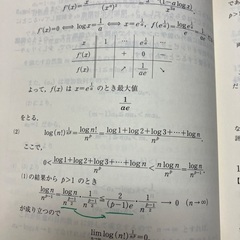 f'(x)=0 ⟺ log x=1/a ⟺ x=e^{1/a}, f(e^{1/a})=1/(ae)
x 1 … e^{1/a} …
f'(x) + 0 −
f(x) ↗ 1/(ae) ↘
よって, f(x) は x=e^{1/a} のとき最大値
1/(ae)
をとる.
(2) log(n!)^{1/n^p}=log n!/n^p=(log1+log2+log3+⋯+log n)/n^p
ここで,
0<(log1+log2+log3+⋯+log n)/n^p<n log n/n^p=log n/n^{p-1}
(1)の結果から p>1 のとき
log n/n^{p-1}=log n/n^{(p-1)/2}・1/n^{(p-1)/2}≦2/((p-1)e)・1/n^{(p-1)/2} → 0 (n→∞)
が成り立つので
lim log(n!)^{1/n^p}=0